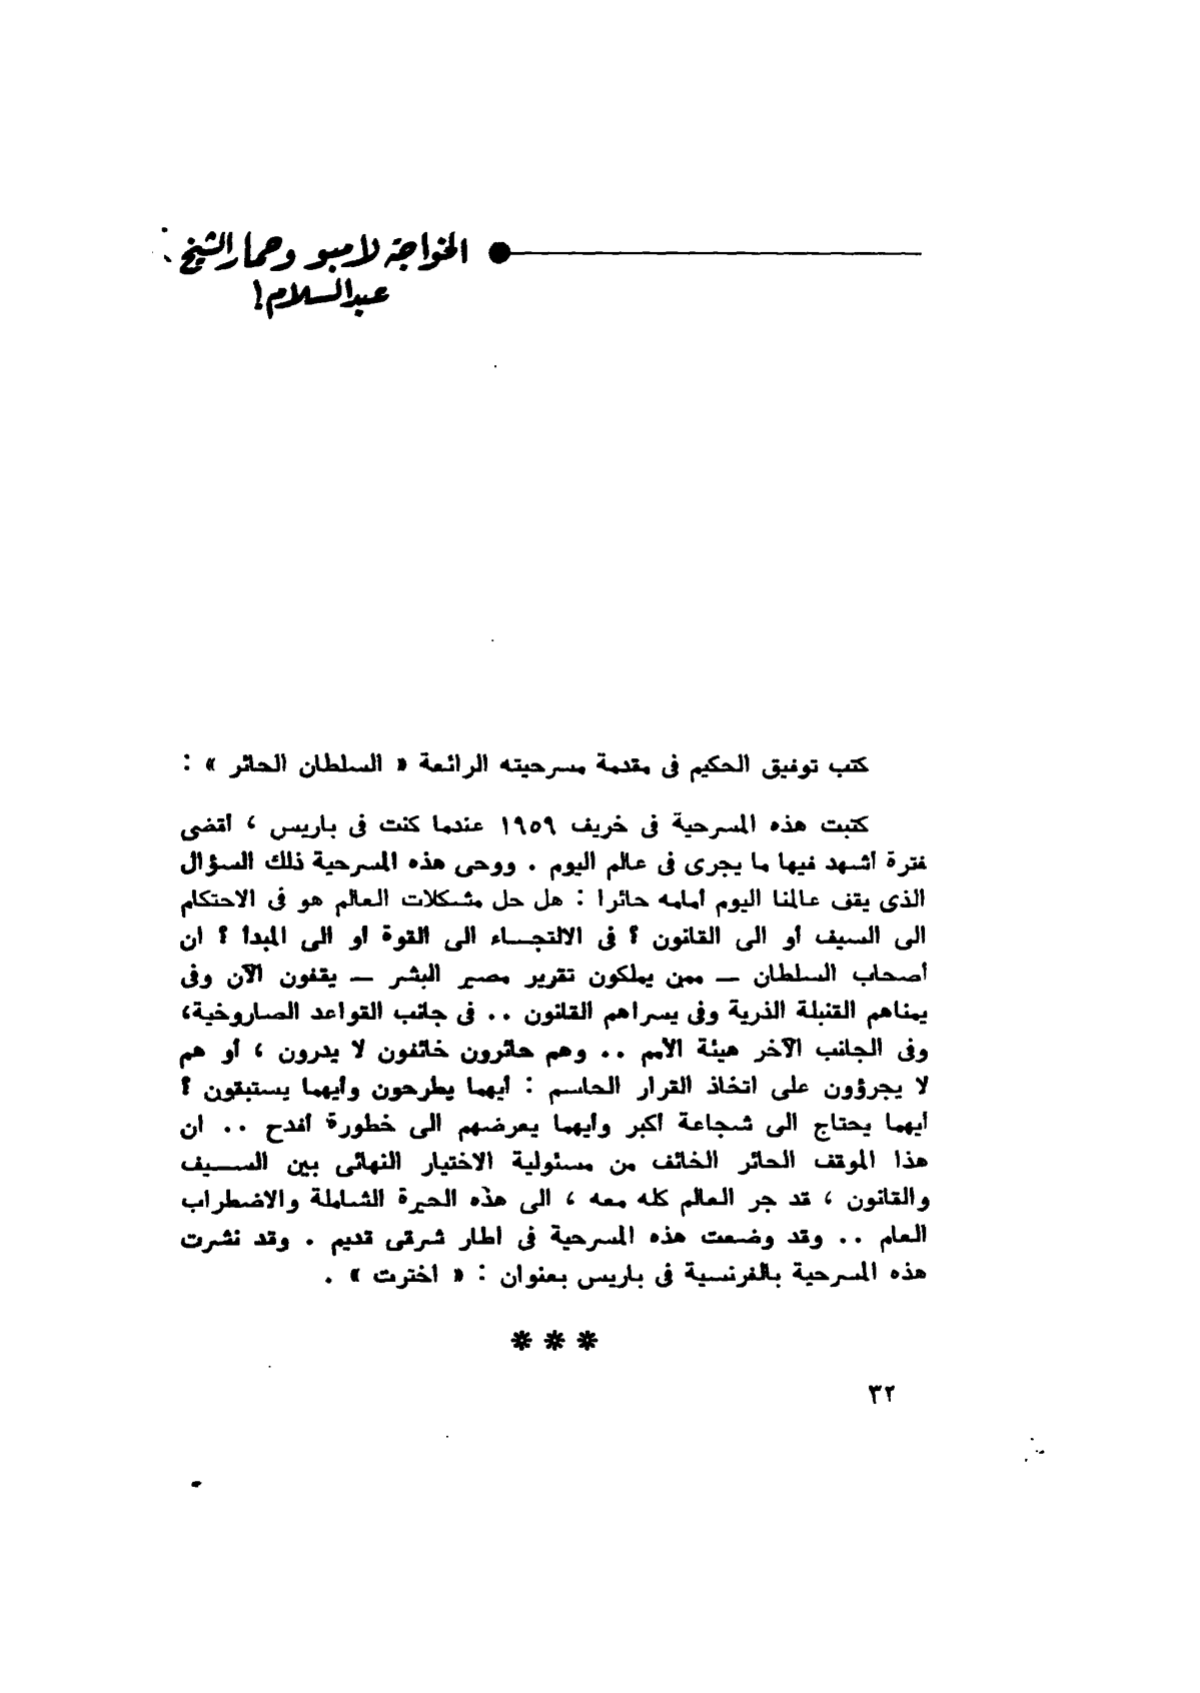 الخواجة لامبو وحمار الشيخ
عبد السلام !
كتب توفيق الحكيم فى مقدمة مسرحيته الرائعة « السلطان الحائر » :
كتبت هذه المسرحية فى خريف ١٩٥٩ عندما كنت فى باريس ، أقضى
فترة أشهد فيها ما يجرى فى عالم اليوم . ووحى هذه المسرحية ذلك السؤال
الذى يقف عالمنا اليوم أمامه حائرا : هل حل مشكلات العالم هو فى الاحتكام
الى السيف أو الى القانون ؟ فى الالتجاء الى القوة أو الى المبدأ ؟ ان
أصحاب السلطان — ممن يملكون تقرير مصير البشر — يقفون الآن وفى
يمناهم القنبلة الذرية وفى يسراهم القانون .. فى جانب القواعد الصاروخية،
وفى الجانب الآخر هيئة الأمم .. وهم حائرون خائفون لا يدرون ، أو هم
لا يجرؤون على اتخاذ القرار الحاسم : أيهما يطرحون وأيهما يستبقون ؟
أيهما يحتاج الى شجاعة أكبر وأيهما يعرضهم الى خطورة أفدح .. ان
هذا الموقف الحائر الخائف من مسئولية الاختيار النهائى بين السيف
والقانون ، قد جر العالم كله معه ، الى هذه الحيرة الشاملة والاضطراب
العام .. وقد وضعت هذه المسرحية فى اطار شرقى قديم . وقد نشرت
هذه المسرحية بالفرنسية فى باريس بعنوان : « اخترت » .
* * *
٣٢